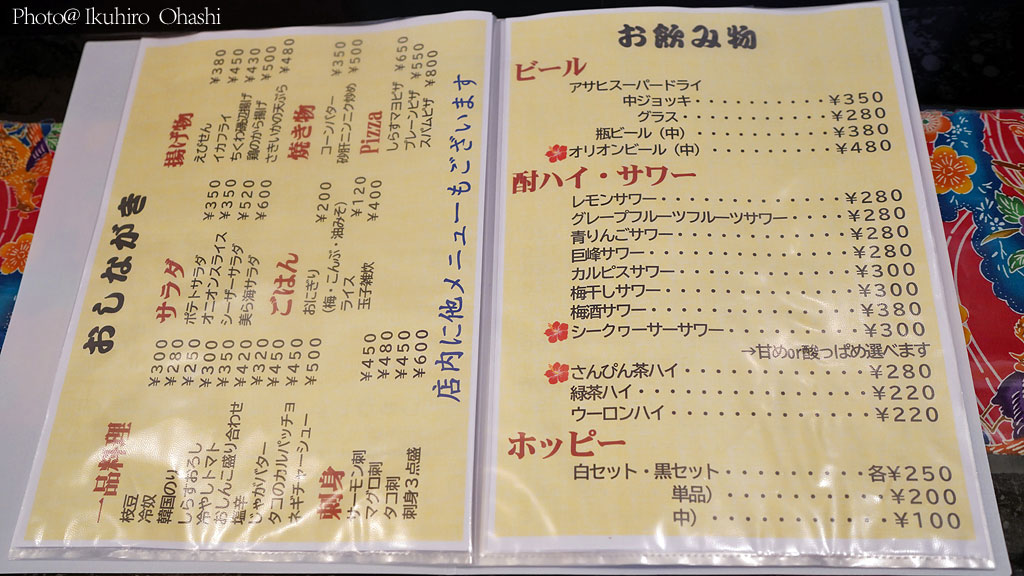 Photo@ Ikuhiro Ohashi
おしながき
一品料理
枝豆 ¥300
冷奴 ¥280
韓国のり ¥250
しらすおろし ¥300
冷やしトマト ¥350
おしんこ盛り合わせ ¥420
塩辛 ¥320
じゃがバター ¥450
タコのカルパッチョ ¥400
ネギチャーシュー ¥500
刺身
サーモン刺 ¥450
マグロ刺 ¥480
タコ刺 ¥450
刺身3点盛 ¥600
サラダ
ポテトサラダ ¥350
オニオンスライス ¥350
シーザーサラダ ¥520
美ら海サラダ ¥600
ごはん
おにぎり ¥200
(梅・こんぶ・油みそ)
ライス ¥120
玉子雑炊 ¥400
揚げ物
えびせん ¥380
イカフライ ¥450
ちくわ磯辺揚げ ¥430
鶏のから揚げ ¥500
さきいかの天ぷら ¥480
焼き物
コーンバター ¥350
砂肝ニンニク炒め ¥500
Pizza
しらすマヨピザ ¥650
プレーンピザ ¥550
スパムピザ ¥800
店内に他メニューもございます
お飲み物
ビール
アサヒスーパードライ
中ジョッキ・・・・・・・・・・¥350
グラス・・・・・・・・・・¥280
瓶ビール（中）・・・・・・・・・・¥380
オリオンビール（中）・・・・・・・・・¥480
酎ハイ・サワー
レモンサワー・・・・・・・・・・・・・¥280
グレープフルーツフルーツサワー・・・・・・¥280
青りんごサワー・・・・・・・・・・・・¥280
巨峰サワー・・・・・・・・・・・・・・¥280
カルピスサワー・・・・・・・・・・・・¥300
梅干しサワー・・・・・・・・・・・・・¥300
梅酒サワー・・・・・・・・・・・・・・¥380
シークヮーサーサワー・・・・・・・・・¥300
→甘めor酸っぱめ選べます
さんぴん茶ハイ・・・・・・・・・・・・¥280
緑茶ハイ・・・・・・・・・・・・・・・¥220
ウーロンハイ・・・・・・・・・・・・・¥220
ホッピー
白セット・黒セット・・・・・・・・・各¥250
単品）・・・・・・・・・・・¥200
中）・・・・・・・・・・・・¥100